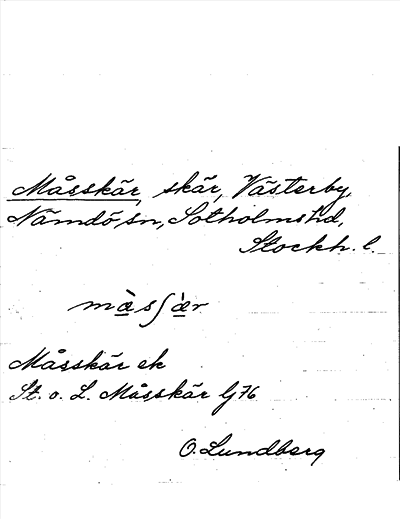 Måsskär, skär, Västerby,
Nämdö sn, Sotholms hd,
Stockh. l.
Måsskär ek
St. o. L. Måsskär
O. Lundberg